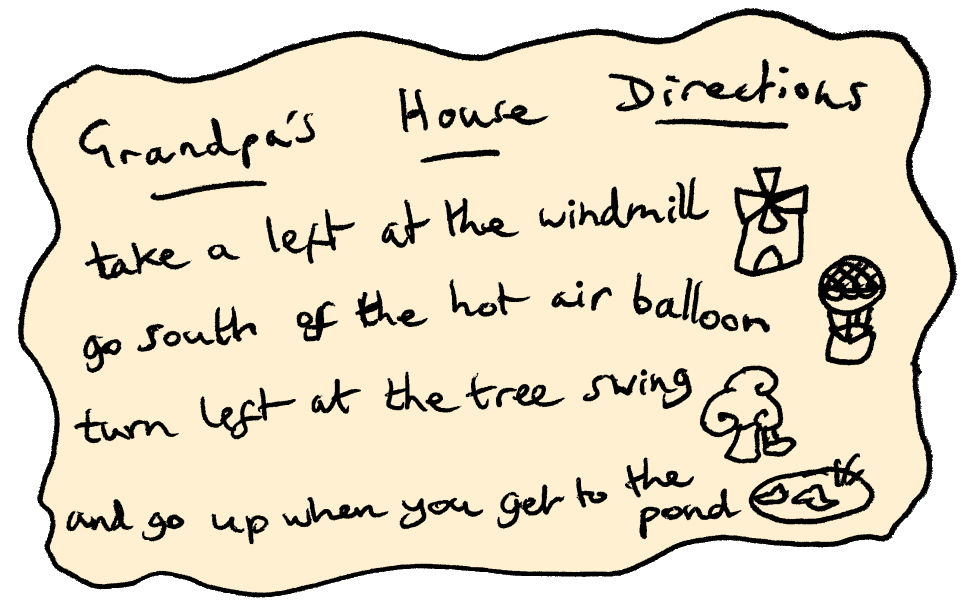 Grandpa's House Directions
take a left at the windmill
go south of the hot air balloon
turn left at the tree swing
and go up when you get to the
pond